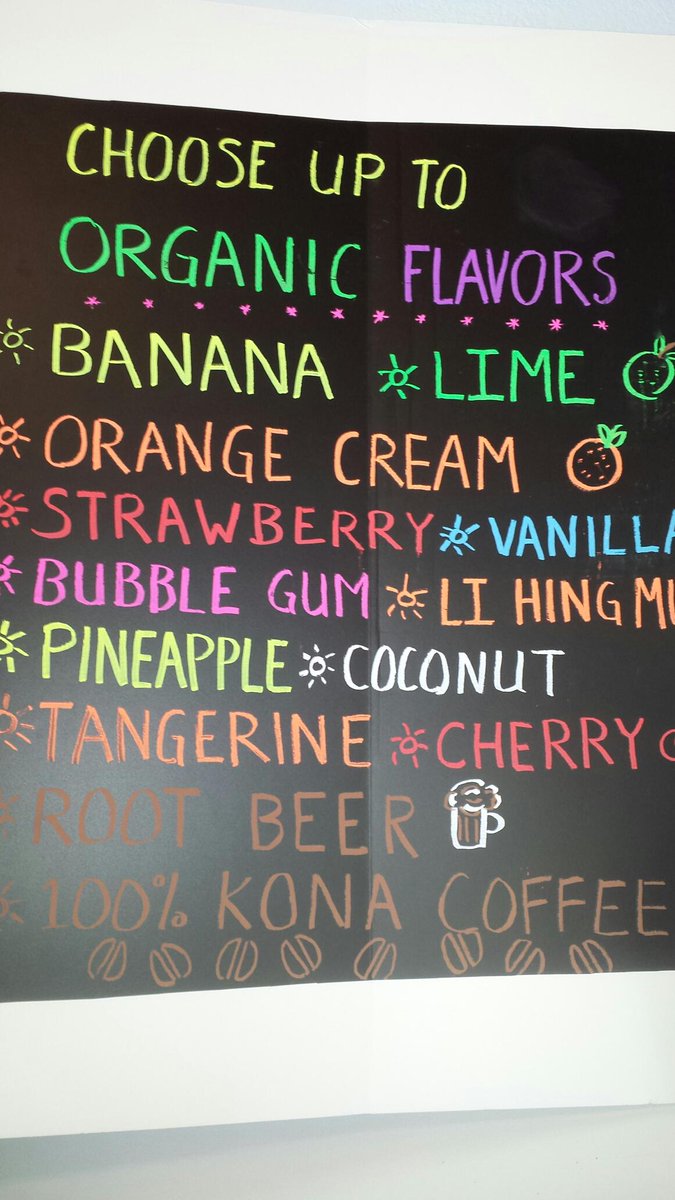 CHOOSE UP TO
ORGANIC FLAVORS
BANANA LIME
ORANGE CREAM
STRAWBERRY VANILLA
BUBBLE GUM LI HING MU
PINEAPPLE COCONUT
TANGERINE CHERRY
ROOT BEER
100% KONA COFFEE